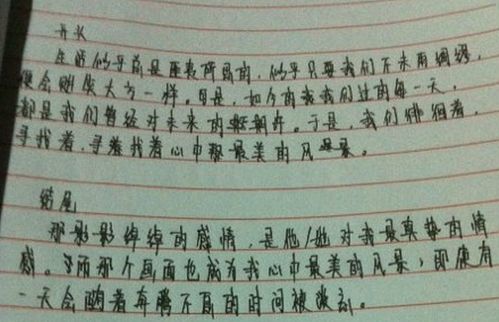 开头
生活似乎前是匪表所目的,似乎只要我们不未雨绸缪,
便会刚发大步一样。但是,如今的我我们过的每一天,
都是我们曾经对未来的期许。于是,我们徘徊着,
寻找着,寻着找着心中最美的风景。
结尾
那影影绰绰的感情,是他/她对我最真挚的情
感。而那个画面也成为我心中最美的风景,即使有
一天会随着奔腾不息的时间被